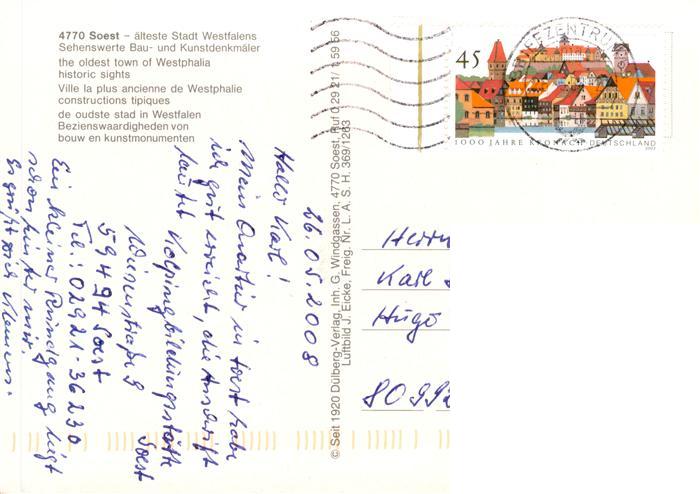 4770 Soest – älteste Stadt Westfalens
Sehenswerte Bau- und Kunstdenkmäler
the oldest town of Westphalia
historic sights
Ville la plus ancienne de Westphalie
constructions tipiques
de oudste stad in Westfalen
Bezienswaardigheden von
bouw en kunstmonumenten
© Seit 1920 Dülberg-Verlag, Inh. G. Windgassen, 4770 Soest, Ruf 0 29 21/1 59 56
Luftbild J. Eicke, Freig. Nr. L. A. S. H. 369/1283
45
1000 JAHRE KRONACH DEUTSCHLAND
26.05.2008
Hallo Karl!
Mein Quartier in Soest habe
ich gut erreicht, die Anschrift
lautet Kolpingbildungsstätte
Soest
Wiesenstraße 9
59494 Soest
Tel.: 02921-36230
Ein kleiner Rundgang liegt
schon hinter mir.
Es grüßt dich
Herrn
Karl
Hugo
8099